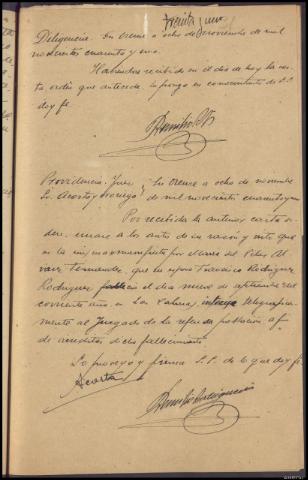 treinta y uno
Diligencia.- En Orense a ocho de noviembre de mil
novecientos cuarenta y uno.
Habiendose recibido en el dia de hoy la car-
ta orden que antecede, la pongo en conocimiento de S.S.
doy fe
Providencia.- Juez En Orense a ocho de noviembre
Sr. Acosta y de mil novecientos cuarenta y uno
Por recibida la anterior carta or-
den, unase a los autos de su razon y visto que
en la misma manifiesta Maria del Pilar Al
varez Fernandez, que su esposo Francisco Rodriguez
Rodriguez falleció el dia nueve de septiembre del
corriente año en La Habana, telegrafica-
mente al Juzgado de la referida poblacion a fin
de acreditar dicho fallecimiento
Lo proveyo y firma S.S. de lo que doy fe
Acosta